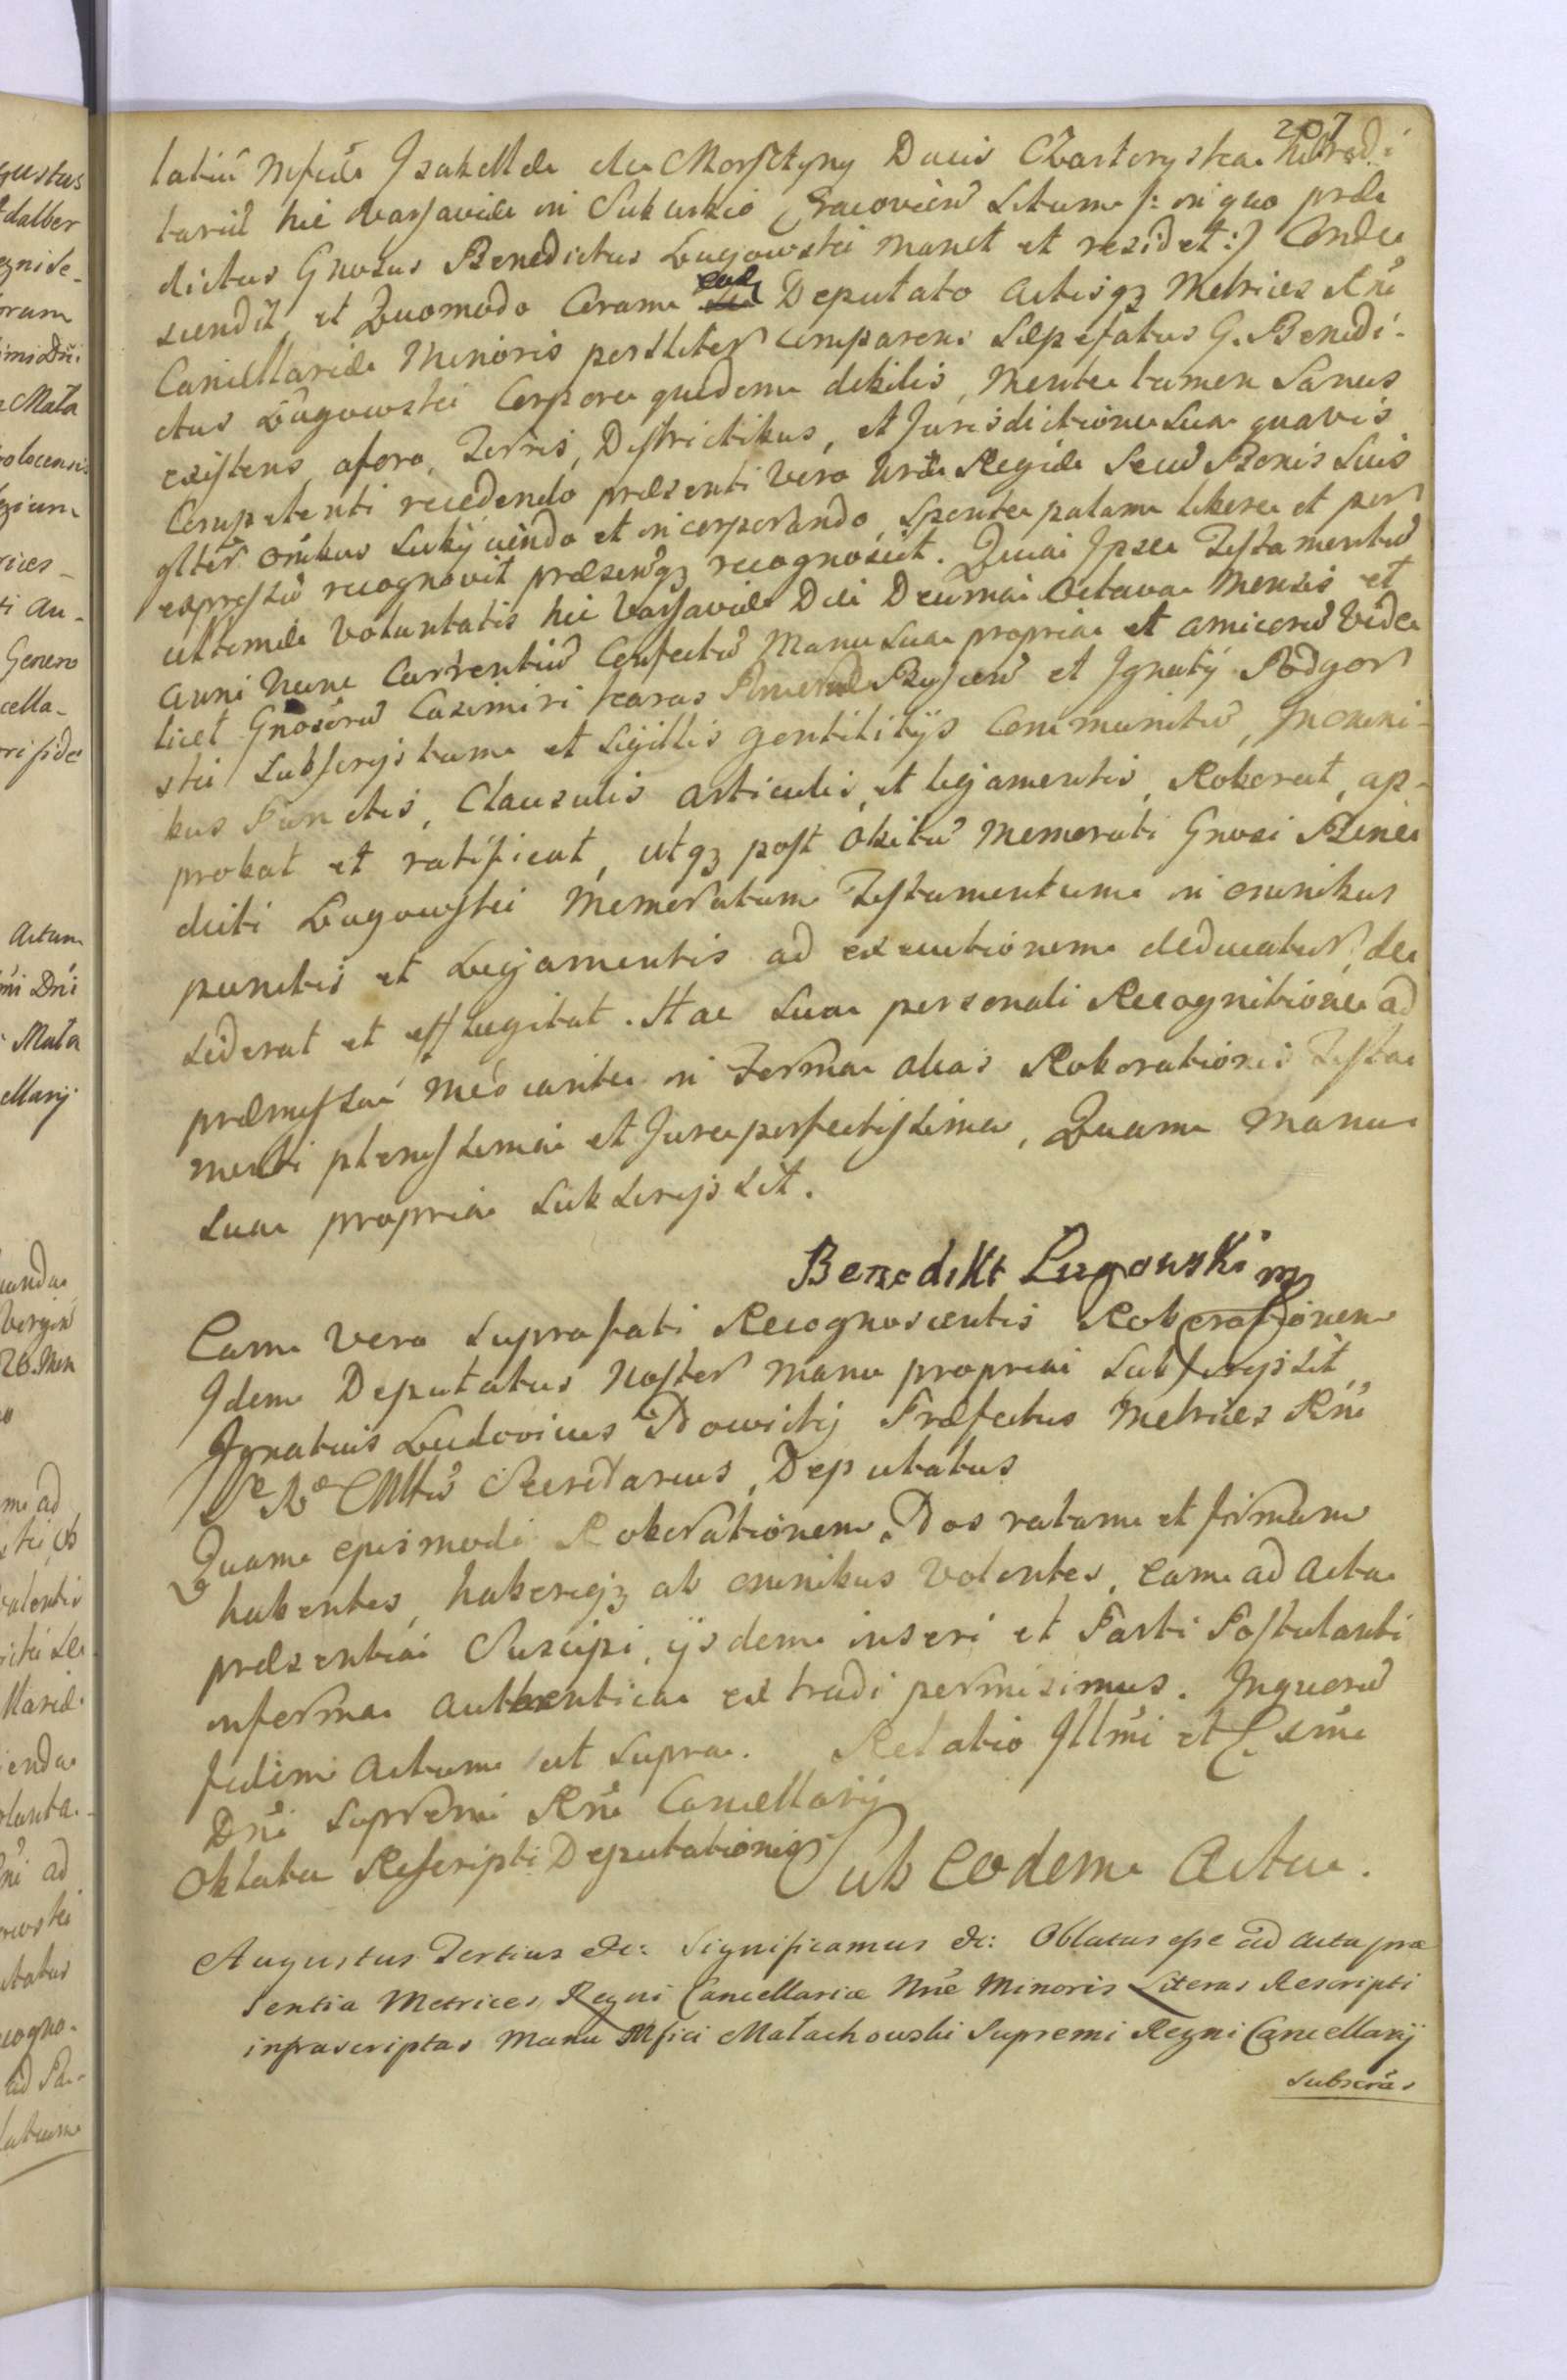 207
latiu Mfcae Izabellae de Morsztyny Ducis Czartoryska haeredi
tariu hic Varsaviae in Suburbio Cracovien Situm /: in quo prae
dictus Gnosus Benedictus Lugowski manet et residet :/ Conde
scendit, et Quomodo Coram eod Deputato Actisqz Metrices Rni
Cancellariae Minoris persliter comparens Saepefatus G. Benedi-
ctus Lugowski Corpore quidem debilis, Mente tamen Sanus
existens, a foro, Terris, Districtibus, et Jurisdictione Sua quavis
Competenti recedendo praesenti vero Nrae Regiae Se cu Bonis Suis
gltter omibus Subijciendo et incorporando, sponte palam libere et per
expressu recognovit praesenqz recognoscit. Quia Ipse Testamentu
ultimae Voluntatis hic Varsaviae Die Decima Octava Mensis et
anni Nunc Currentiu Confectu Manu Sua propria et amicoru vide
licet Gnosoru Casimiri Karas et Ignatij Podgor
ski Subscriptum et Sigillis gentilitijs Communitu, In omni-
bus Punctis, Clausulis articulis, et ligamentis, Roborat, ap-
probat et ratificat, utqz post obitu Memorati Gnosi Bene
dicti Lugowski Memoratum Testamentum in omnibus
punctis et Ligamentis ad executionem deducatur, de
siderat et efflagitat. Hac Sua personali Recognitione ad
praemissa mediante in Forma alias Roborationis Testa
menti plenissima et Jure perfectissima, Quam manu
Sua propria Subscripsit.
Benedikt Lugowski mp
Eam vero Suprafati Recognoscentis Roborationem
Idem Deputatus Noster manu propria Subscripsit
Ignatius Ludovicus Nowicki Praefectus Metrices Rni
S R Mttis Secretarius, Deputatus
Quam ejusmodi Roborationem Nos ratam et firmam
habentes, haberiqz ab omnibus Volentes, eam ad Acta
praesentia Suscipi, ijsdem inseri et Parti Postulanti
in forma authentica extradi permisimus. In quoru
fidem Actum ut Supra. Relatio Illmi et Exmi
Dni Supremi Rni Cancellarij
Oblata Rescripti Deputationis Sub Eodem Actu.
Augustus Tertius &c: Significamus &c: Oblatas esse ad acta prae
sentia Metrices Regni Cancellariae Nrae Minoris Literas Rescripti
infrascriptas Manu Mfici Małachowski Supremi Regni Cancellarij
Subscras